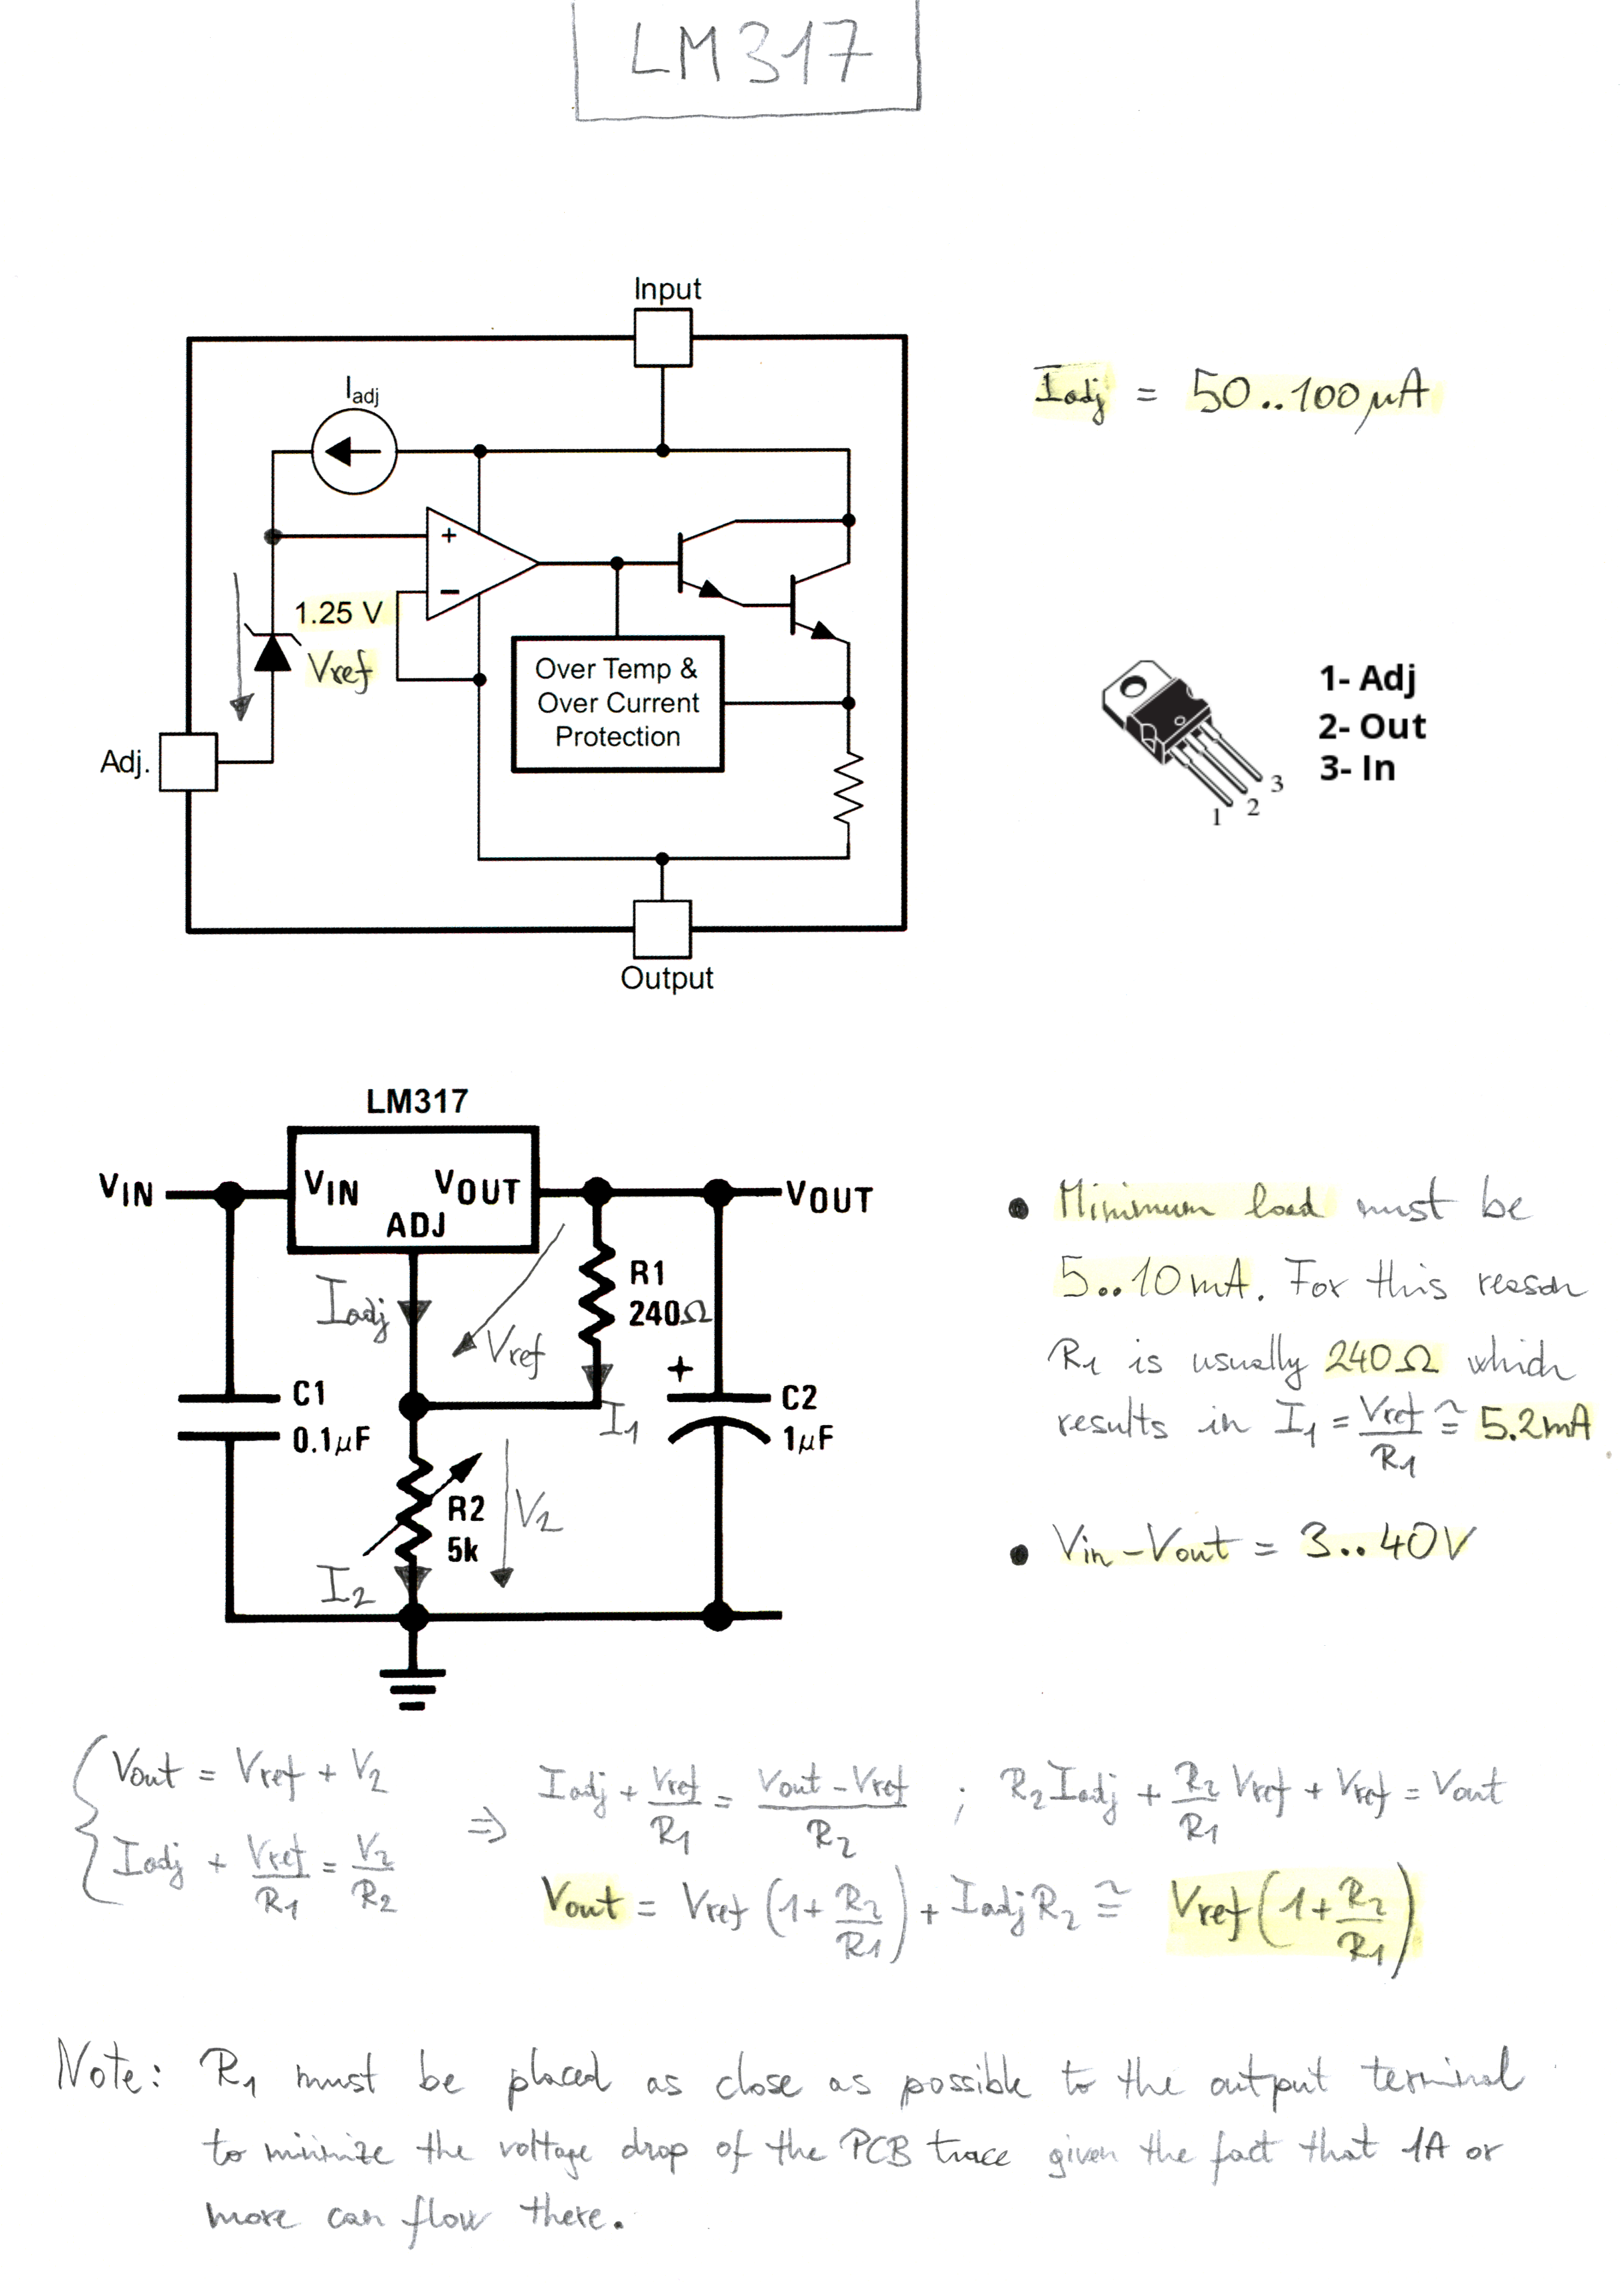 LM317
Input
Iadj
Iadj = 50..100μA
+
−
1.25 V
Vref
Over Temp &
Over Current
Protection
Adj.
1- Adj
2- Out
3- In
1 2 3
Output
LM317
VIN
VIN VOUT
ADJ
VOUT
Iadj
Vref
R1
240Ω
I1
+
C1
0.1μF
C2
1μF
R2
5k
V2
I2
• Minimum load must be
5..10mA. For this reason
R1 is usually 240Ω which
results in I1 = Vref/R1 ≅ 5.2mA
• Vin-Vout = 3..40V
Vout = Vref + V2
Iadj + Vref/R1 = V2/R2
⇒ Iadj + Vref/R1 = (Vout - Vref)/R2 ; R2Iadj + R2/R1 Vref + Vref = Vout
Vout = Vref (1 + R2/R1) + IadjR2 ≅ Vref (1 + R2/R1)
Note: R1 must be placed as close as possible to the output terminal
to minimize the voltage drop of the PCB trace given the fact that 1A or
more can flow there.